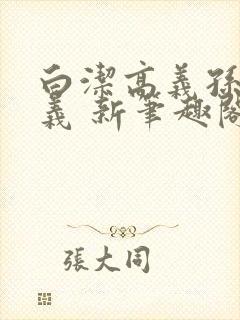 白潔高義孫
義 新筆趣閣
張大同